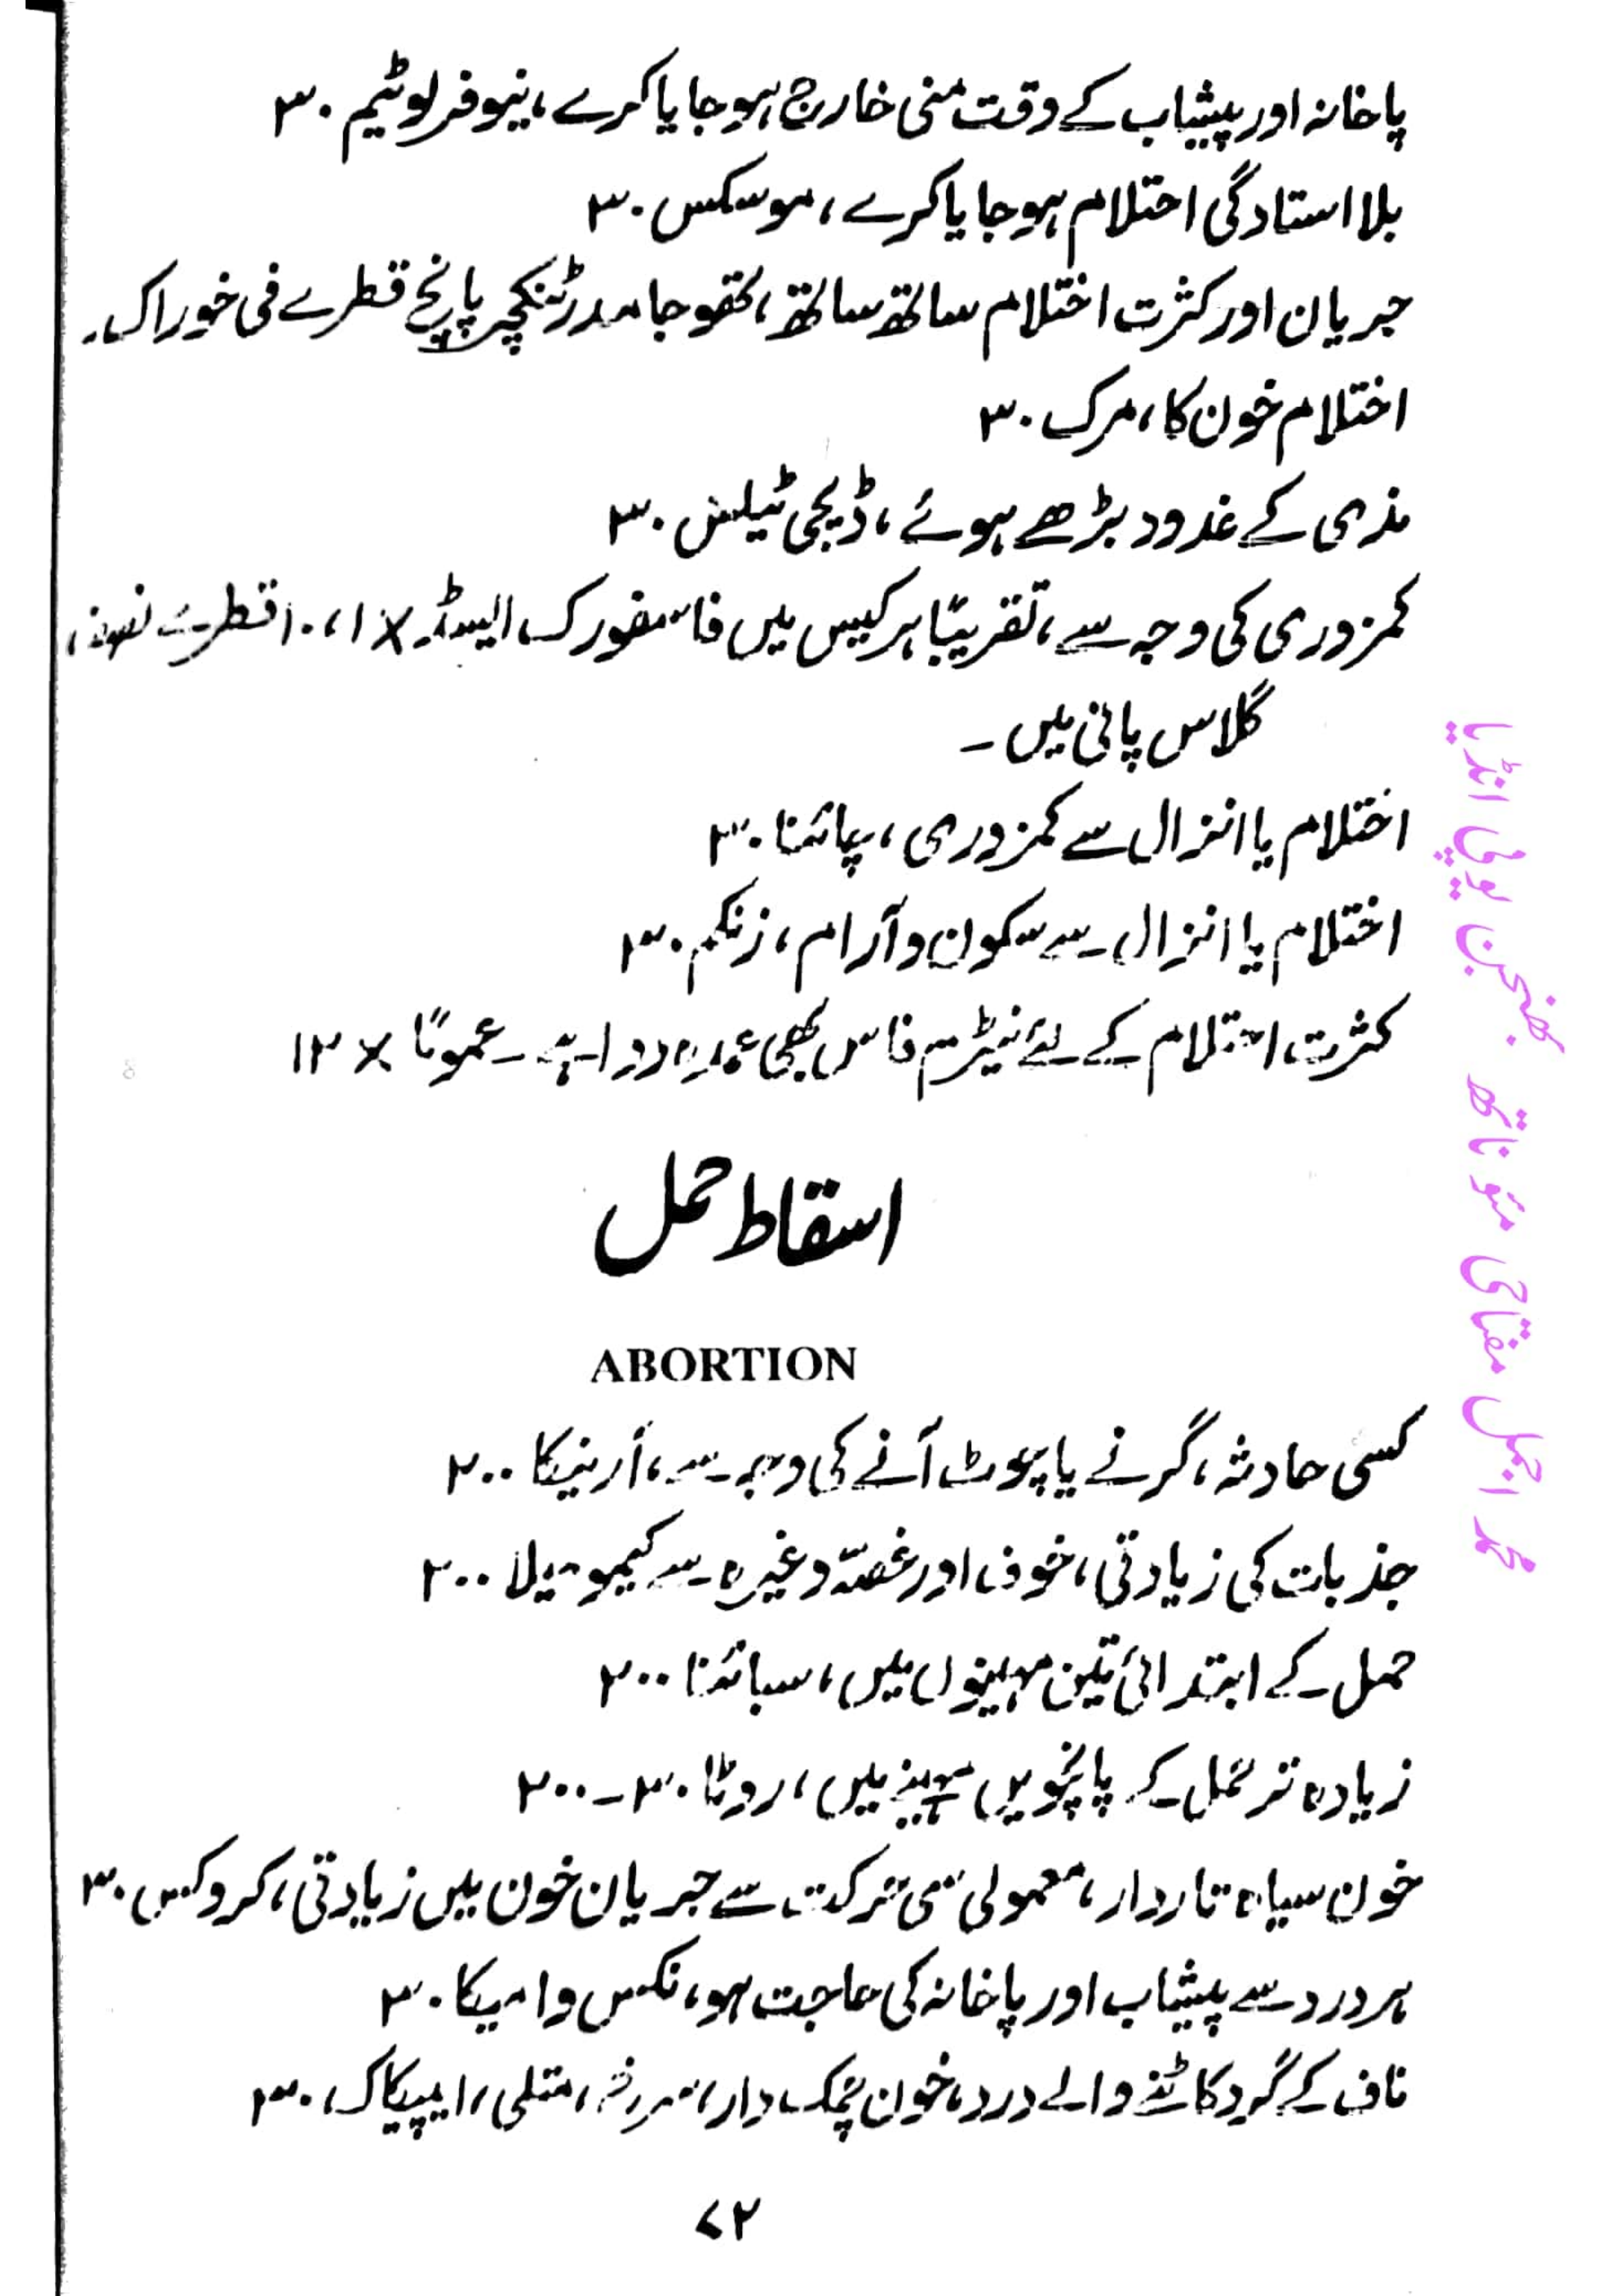 پاخانہ اور پیشاب کے وقت منی خارج ہو جایا کرے، نیوفرلوٹیم ۳۰
بلا استادگی احتلام ہو جایا کرے، موسکس ۳۰
جریان اور کثرت اختلام ساتھ ساتھ، تھوجا مدر ٹنکچر پانچ قطرے فی خوراک۔
اختلام خون کا، مرک ۳۰
مذی کے غدود بڑھے ہوئے، ڈیجی ٹیلس ۳۰
کمزوری کی وجہ سے، تقریباً ہر کیس میں فاسفورک ایسڈ ۱x، ۱۰ قطرے نصف
گلاس پانی میں ۔
اختلام یا انزال سے کمزوری، چائنا ۳۰
اختلام یا انزال سے سکون و آرام، زنکم ۳۰
کثرت احتلام کے لئے نیٹرم فاس بھی عمدہ دوا ہے ۔ عموماً ۱۲x
اسقاط حمل
ABORTION
کسی حادثہ، گرنے یا چوٹ آنے کی وجہ سے، آرنیکا ۲۰۰
جذبات کی زیادتی، خوف اور غصّہ وغیرہ سے کیمومیلا ۲۰۰
حمل کے ابتدائی تین مہینوں میں، سبائنا ۲۰۰
زیادہ تر حمل کے پانچویں مہینے میں، روٹا ۳۰ ۔ ۲۰۰
خون سیاہ تاردار، معمولی سی حرکت سے جریان خون میں زیادتی، کروکس ۳۰
ہر درد سے پیشاب اور پاخانہ کی حاجت ہو، نکس وامیکا ۳۰
ناف کے گرد کاٹنے والے درد، خون چمک دار، سرخ، متلی، ایپیکاک، ۳۰
۷۲
محمد اجمل مفتاحی مئو ناتھ بھنجن یوپی انڈیا